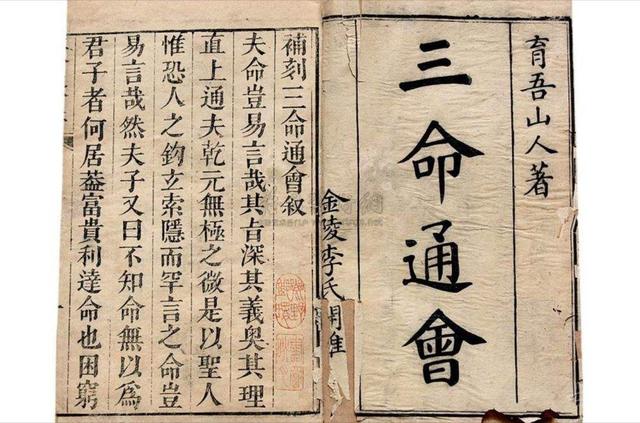 育吾山人著
三命通會
金陵李氏
補刻三命通會叙
夫命豈易言哉其旨深其義奥其理
直上通夫乾元無極之微是以聖人
惟恐人之鈎玄索隱而罕言之命豈
易言哉然夫子又曰不知命無以爲
君子者何居葢富貴利達命也困窮